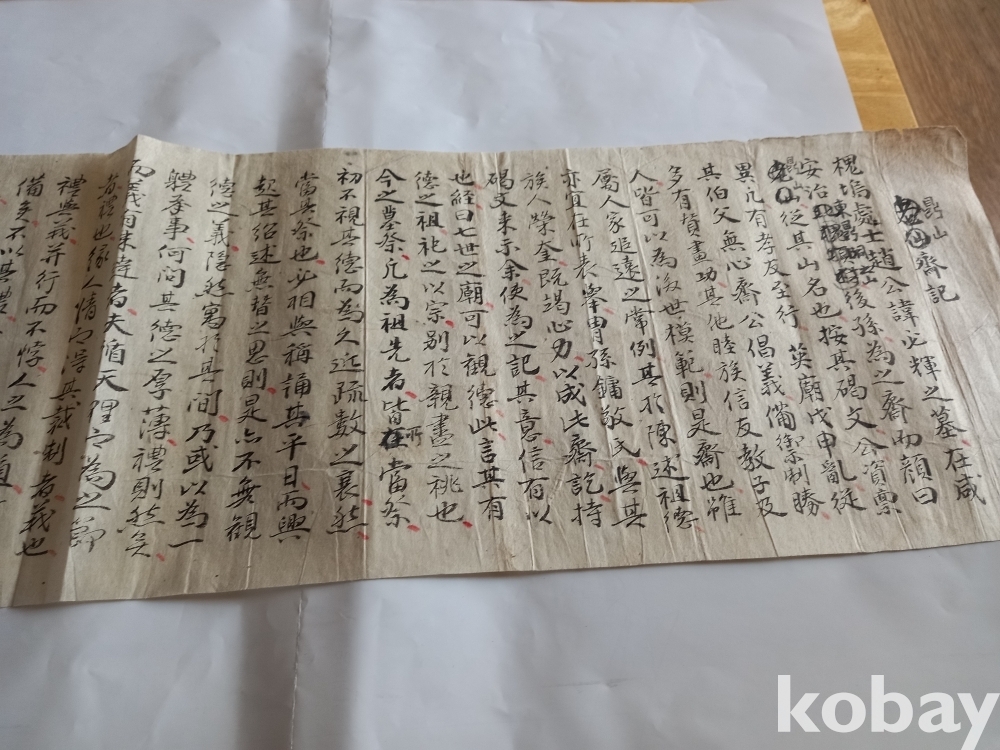 昆山齋記
槐塢處士趙公諱必輝之墓在咸
安治後孫為之齋而顔曰
昆山從其山名也按其碣文公資稟
異凡有孝友至行 英廟戊申亂從
其伯父無心齋公倡義備禦制勝
多有贊畫功其他睦族信友教子及
人皆可以為後世模範則是齋也雖
屬人家追遠之常例其於陳述祖德
亦宜在所表章胄孫鏞敏氏與其
族人榮奎旣竭心力以成此齋訖持
碣文来示余使為之記其意信有以
也經曰七世之廟可以觀德此言其有
德之祖祀之以宗别於親盡之祧也
今之墓祭凡為祖先者皆所當祭
初不視其德而為久近疏數之裏然
當其祭也必相與稱誦其平日而興
起其紹述無替之思則是亦不無觀
德之義隱然寓於其間乃或以為一
軆奉事何問其德之厚薄禮則然矣
而義有未達者夫循天理而為之節
者禮也緣人情而淂其裁制者義也
禮與義并行而不悖人之為道
備矣不以其禮
kobay